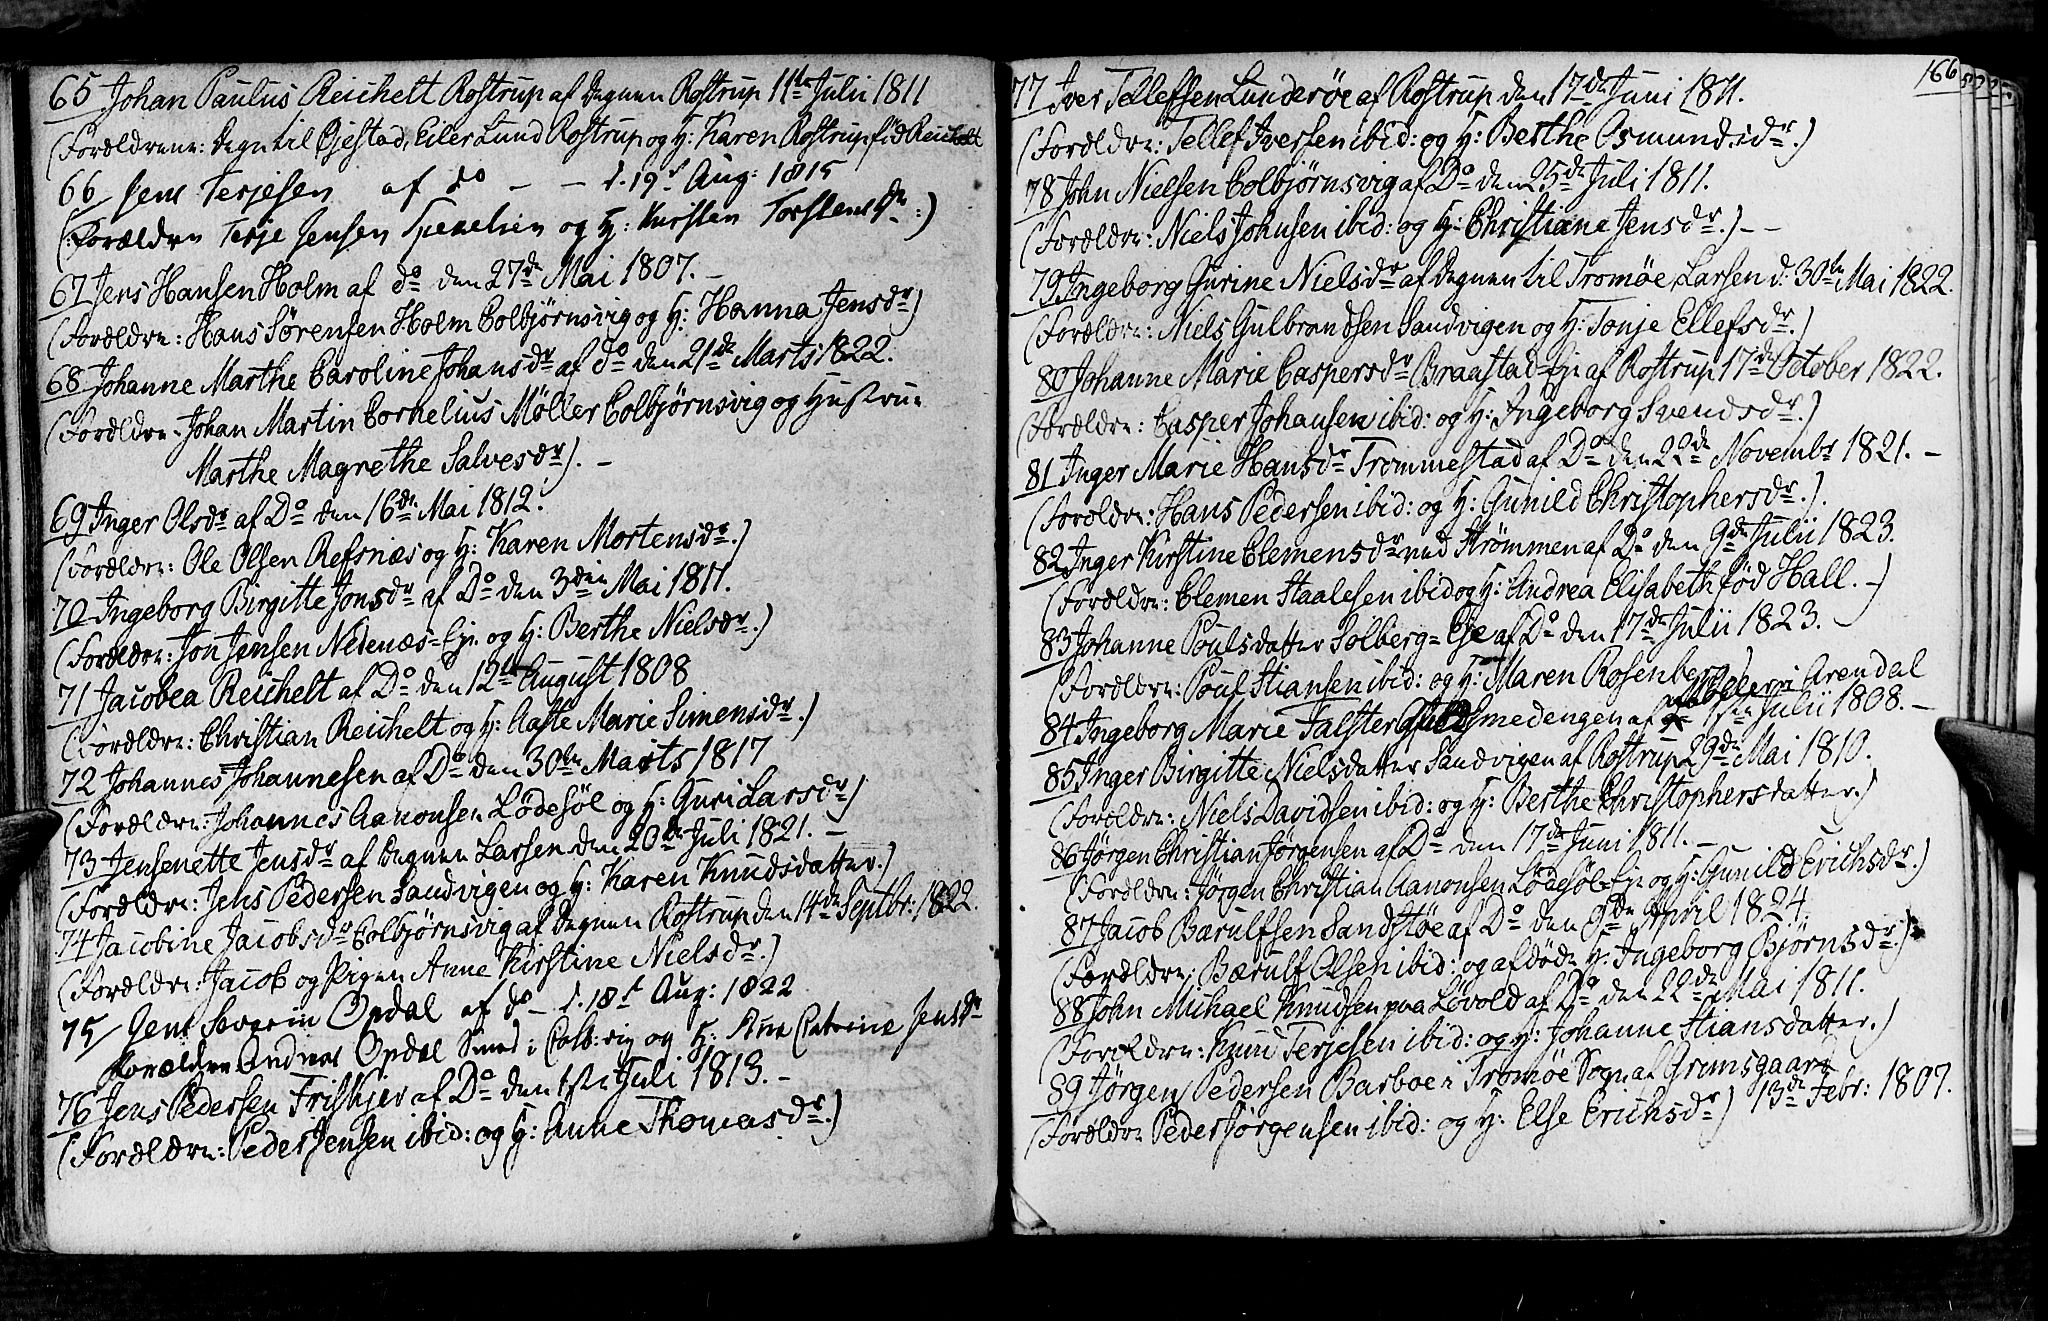 65 Johan Paulus Reichelt Rostrup af Degnen Rostrup 11te Julii 1811
(Forældrene: Degn til Øjestad, Eiler Lund Rostrup og H: Karen Rostrup fød Reichelt
66 Jens Terjesen af do - - d. 19d Aug: 1815
(Forældre Terje Jensen og H: Kirsten Torstensdr:)
67 Jens Hansen Holm af do den 27de Mai 1807. -
(Forældre: Hans Sørensen Holm Colbjørnsvig og H: Hanna Jensdr)
68 Johanne Marthe Caroline Johansdr af do den 21de Marts 1822.
(Forældre: Johan Martin Cornelius Møller Colbjørnsvig og Hustrue
Marthe Magrethe Salvesdr). -
69 Inger Olsdr af Do den 16de Mai 1812.
(Forældre: Ole Olsen Refsnæs og H: Karen Mortensdr.)
70 Ingeborg Birgitte Jonsdr af Do den 3die Mai 1811.
(Forældre: Jon Jensen Nedenæs=Eje og H: Berthe Nielsdr.)
71 Jacobea Reichelt af Do den 12te August 1808
(Forældre: Christian Reichelt og H: Aase Marie Simensdr.)
72 Johannes Johannesen af Do den 30te Marts 1817
(Forældre: Johannes Aanonsen Lødesøl og H: Guri Larsdr)
73 Jensenette Jensdr af Degnen Larsen den 20de Juli 1821. -
(Forældre: Jens Pedersen Sandvigen og H: Karen Knudsdatter.)
74 Jacobine Jacobsdr Colbjørnsvig af Degnen Rostrup den 14de Septbr: 1822.
(Forældre: Jacob og Pigen Anne Kirstine Nielsdr.)
75 Jens Severin Opdal af do - d. 18d Aug: 1822
Forældre Andreas Opdal Smed i Colb:vig og H: Ane Catrine Jensdr
76 Jens Pedersen Friskjer af Do den 1ste Juli 1813. -
(Forældre: Peder Jensen ibid: og H: Anne Thomasdr.)
166
77 Iver Tellefsen Lunderøe af Rostrup den 17de Juni 1811.
(Forældre: Tellef Iversen ibid: og H: Berthe Osmundsdr.)
78 John Nielsen Colbjørnsvig af Do den 25de Juli 1811.
(Forældre: Niels Johnsen ibid: og H: Christiane Jensdr.) - -
79 Ingeborg Gurine Nielsdr af Degnen til Tromøe, Larsen d: 30te Mai 1822.
(Forældre: Niels Gulbrandsen Sandvigen og H: Tonje Ellefsdr.)
80 Johanne Marie Caspersdr Braastad=Eje af Rostrup 17de October 1822.
(Forældre: Casper Johansen ibid: og H: Ingeborg Svendsdr.)
81 Inger Marie Hansdr Trommestad af Do den 22de Novembr 1821. -
(Forældre: Hans Pedersen ibid: og H: Gunild Christophersdr.).
82 Inger Kirstine Clemensdr ved Strømmen af Do den 9de Julii 1823.
(Forældre: Clemen Staalesen ibid og H: Andrea Elisabeth fød Hall. -)
83 Johanne Poulsdatter Solberg=Eje af Do den 17de Julii 1823. -
(Forældre: Poul Stiansen ibid: og H: Maren Rosenberg)
84 Ingeborg Marie Falster Guldsmedengen af Møller i Arendal 1ste Julii 1808. -
85 Inger Birgitte Nielsdatter Sandvigen af Rostrup 29de Mai 1810.
(Forældre: Niels Davidsen ibid: og H: Berthe Christophersdatter.)
86 Jørgen Christian Jørgensen af Do den 17de Juni 1811. -
(Forældre: Jørgen Christian Aanonsen Lødesøl=Eje og H: Gunild Erichsdr.)
87 Jacob Bærulfsen Sandstøe af Do den 9de April 1824.
(Forældre: Bærulf Olsen ibid: og afdøde H: Ingeborg Bjørnsdr.)
88 John Michael Knudsen paa Løvold af Do den 22de Mai 1811.
(Forældre: Knud Terjesen ibid: og H: Johanne Stiansdatter.)
89 Jørgen Pedersen Barboe i Tromøe Sogn af Grimsgaard
(Forældre Peder Jørgensen ibid: og H: Else Erichsdr) 13de Febr: 1807.